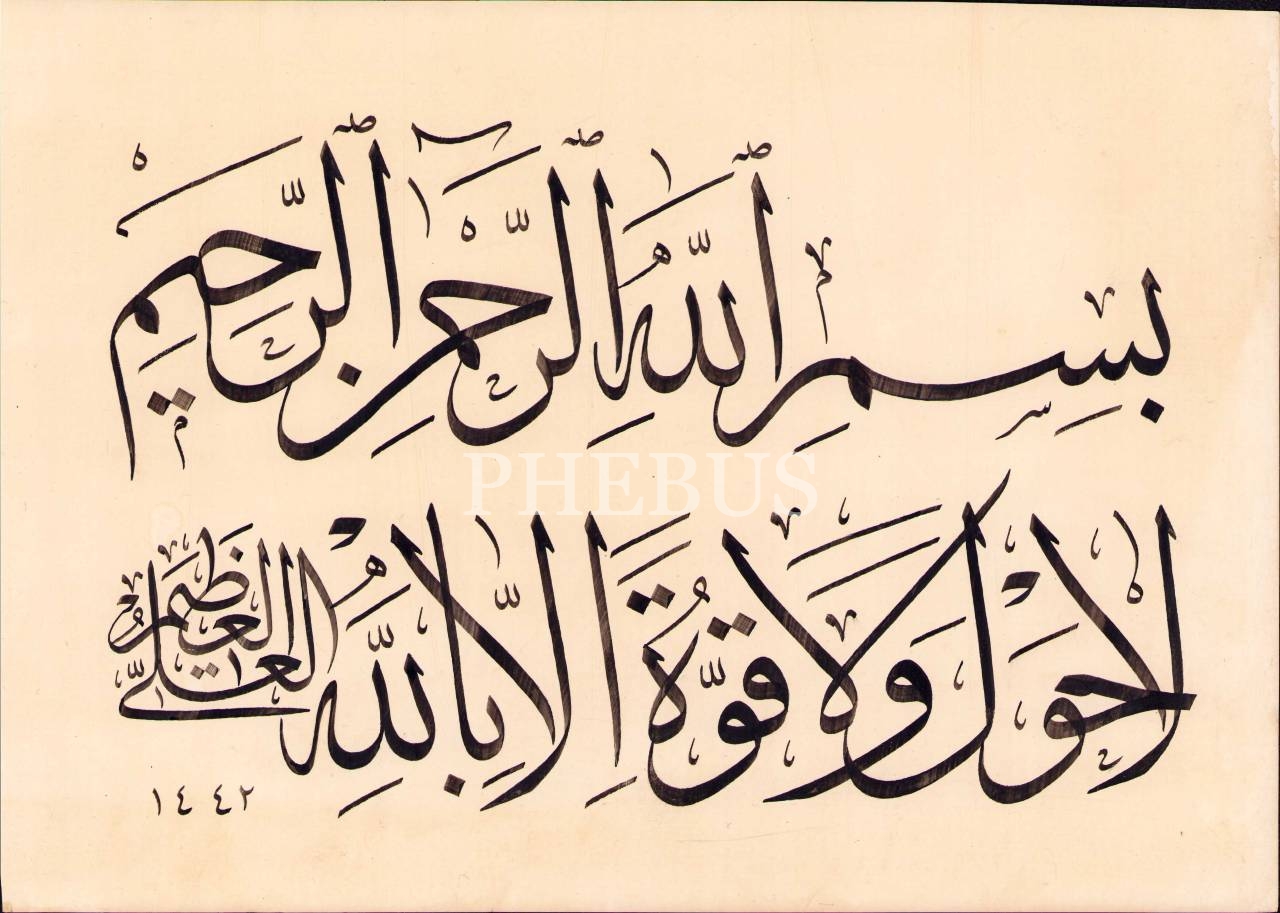 بِسْمِ ٱللَّهِ ٱلرَّحْمَٰنِ ٱلرَّحِيمِ
لَا حَوْلَ وَلَا قُوَّةَ إِلَّا بِاللَّهِ الْعَلِيِّ الْعَظِيمِ
١٤٤٢
PHEBUS